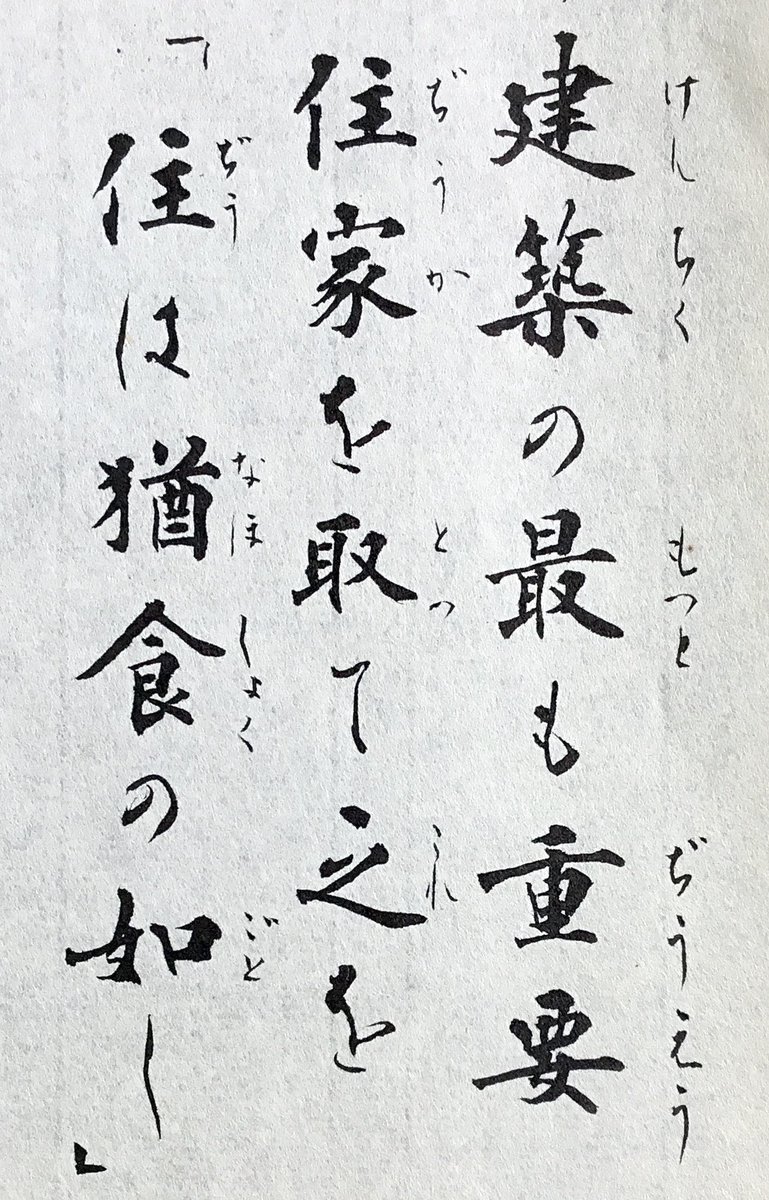 建築の最も重要
けんちく もつと ぢうえう
住家を取て之を
ぢうか とつ これ
「住は猶食の如し」
ぢう なほ しよく ごと